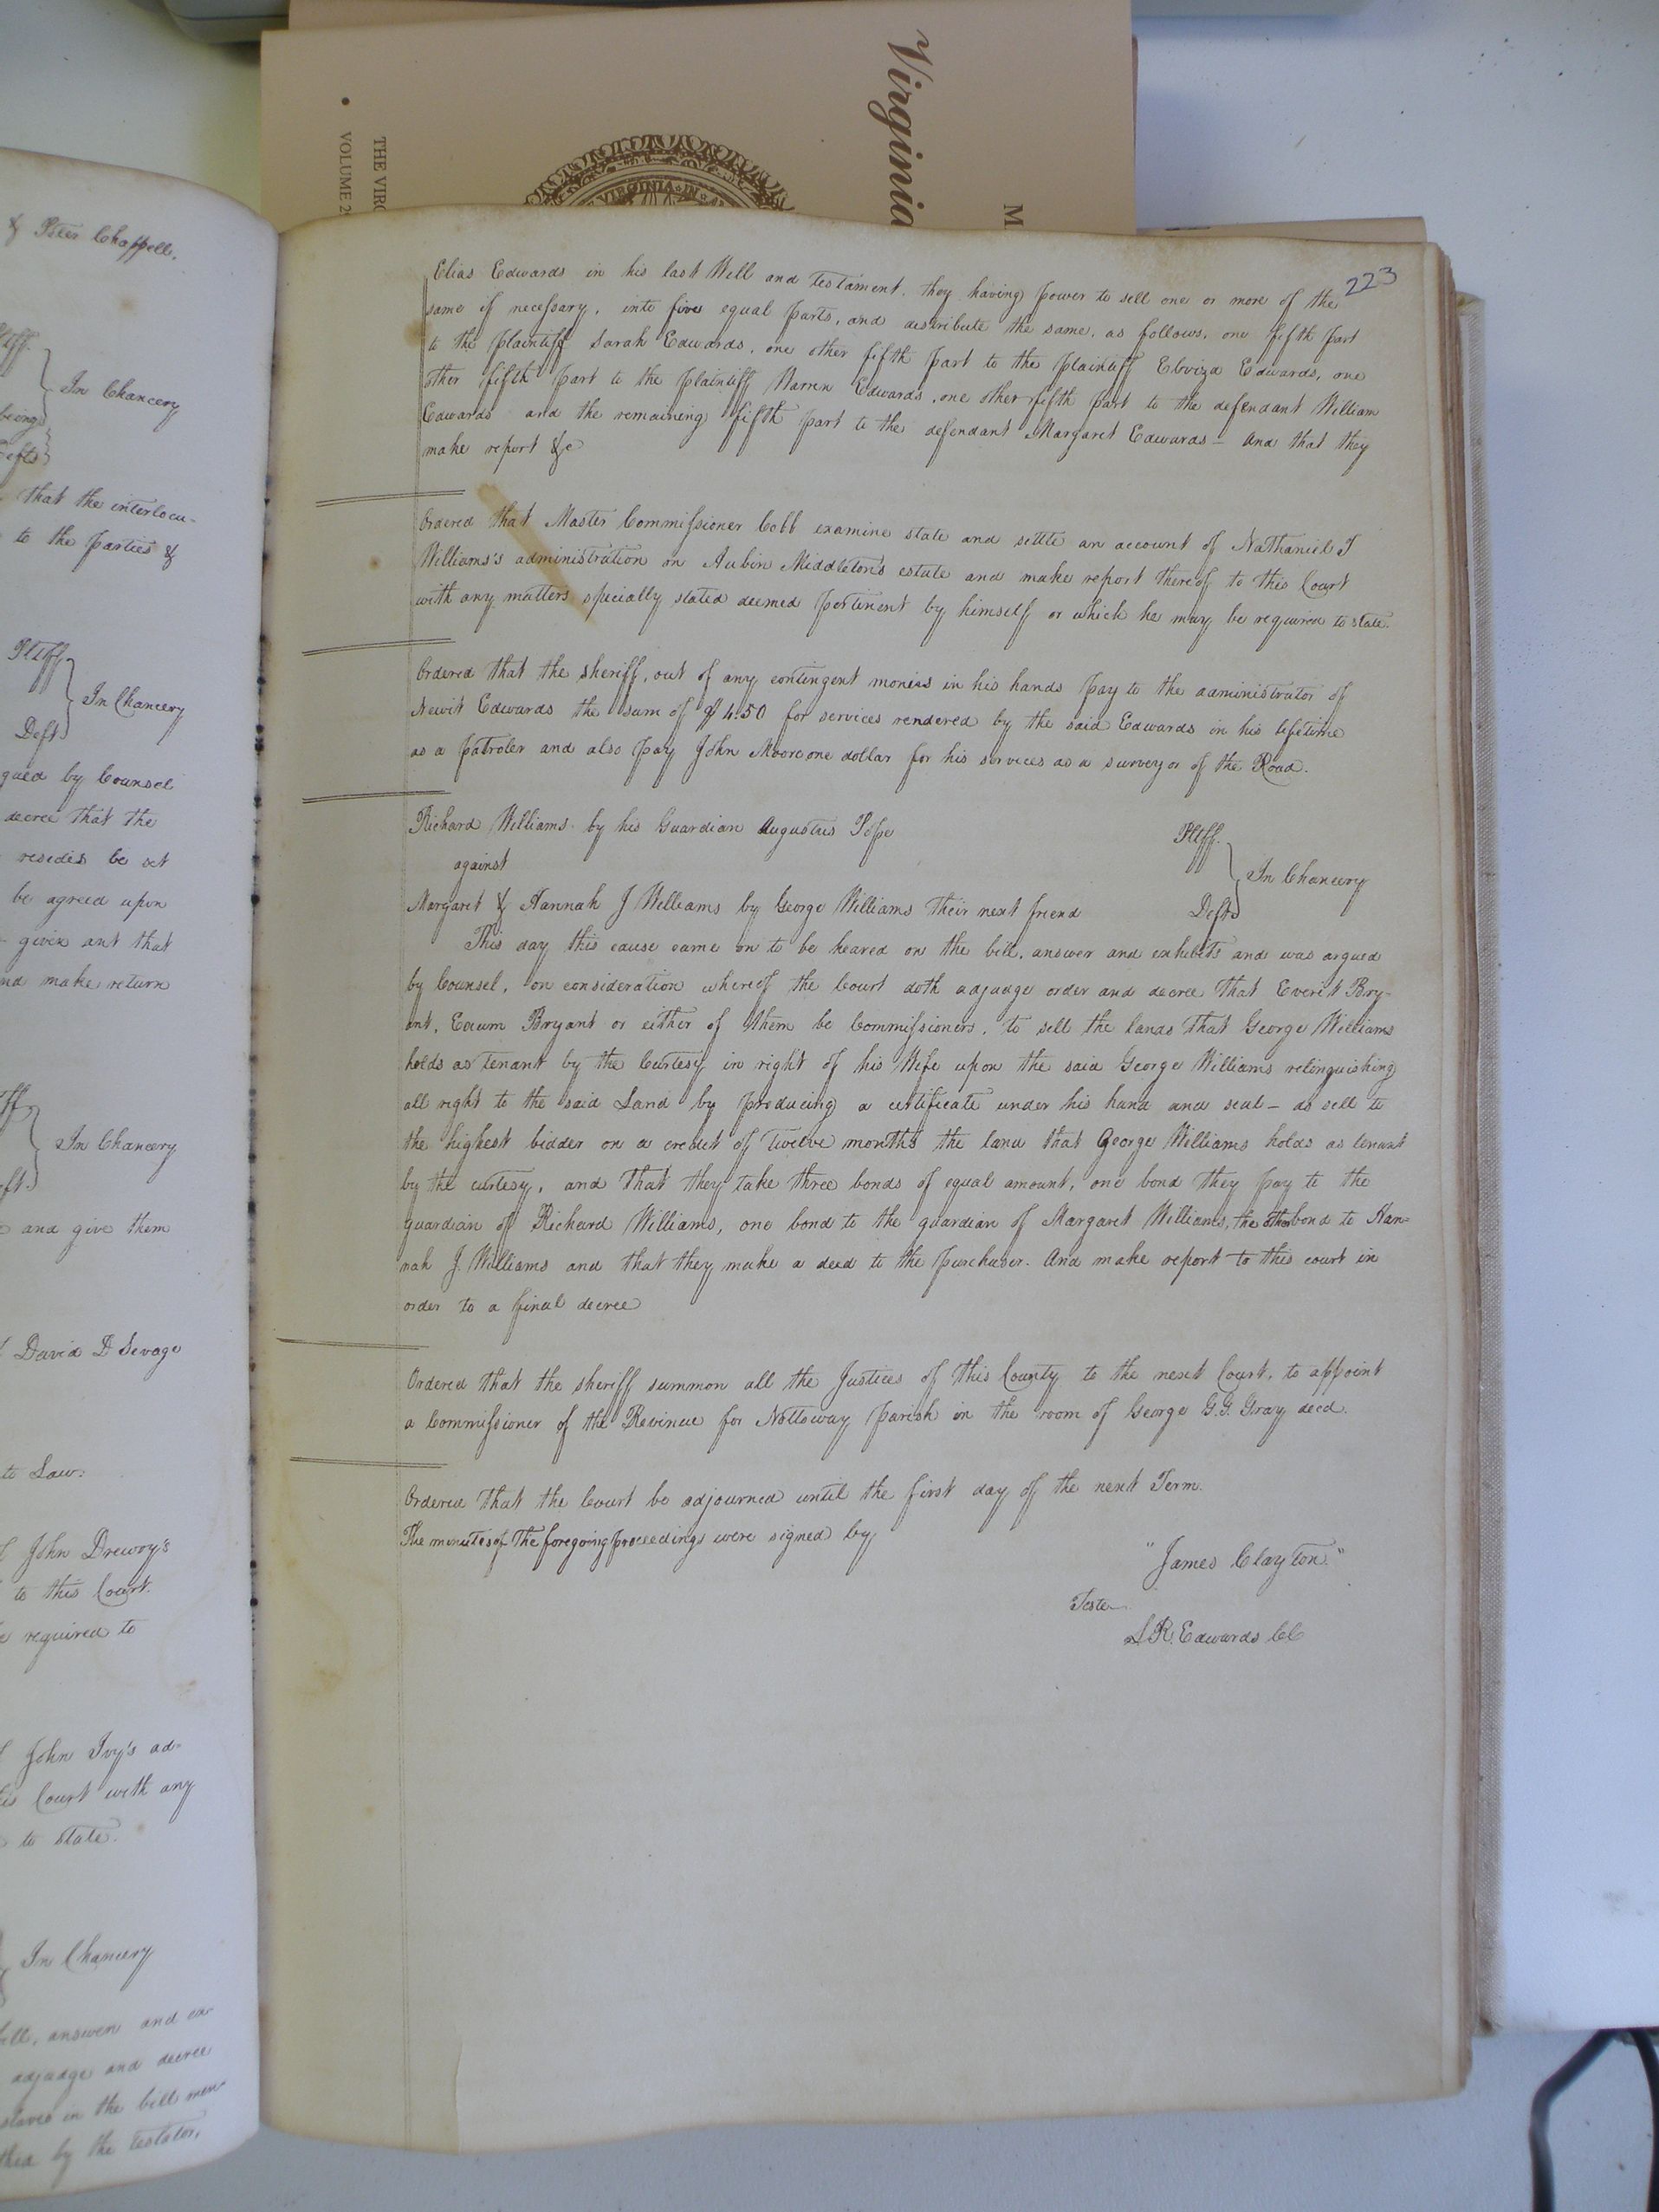 Virginia
M
THE VIRG
VOLUME 2
VIRGINIA IN
& Peter Chappell.
In Chancery
being
Defts
that the interlocu-
to the parties &
Pltff
In Chancery
Deft
gued by Counsel
decree that the
resides be set
be agreed upon
given ant that
nd make return
In Chancery
ft.
and give them
David D Savage
to Law:
John Drewry's
to this Court.
e required to
John Ivy's ad-
is Court with any
to state.
In Chancery
bill, answer and ex
adjudge and decree
slaves in the bill men-
thed by the testator,
223
Elias Edwards in his last Will and Testament. they having power to sell one or more of the
same if necessary, into five equal parts, and distribute the same, as follows, one fifth part
to the plaintiff Sarah Edwards, one other fifth part to the plaintiff Elviza Edwards, one
other fifth part to the plaintiff Warren Edwards, one other fifth part to the defendant William
Edwards and the remaining fifth part to the defendant Margaret Edwards – And that they
make report &c
Ordered that Master Commissioner Cobb examine state and settle an account of Nathaniel T
Williams's administration on Aubin Middleton's estate and make report thereof to this Court
with any matters specially stated deemed pertinent by himself or which he may be required to state.
Ordered that the sheriff, out of any contingent monies in his hands pay to the administrator of
Newit Edwards the sum of $4.50 for services rendered by the said Edwards in his lifetime
as a patroler and also pay John Moore one dollar for his services as a surveyor of the Road.
Richard Williams by his Guardian Augustus Pope Pltff.
against In Chancery
Margaret & Hannah J Williams by George Williams their next friend Defts
This day this cause came on to be heared on the bill, answer and exhibits and was argued
by Counsel, on consideration whereof the Court doth adjudge order and decree that Everit Bry-
ant, Exum Bryant or either of them be Commissioners, to sell the lands that George Williams
holds as tenant by the Curtesy in right of his Wife upon the said George Williams relinquishing
all right to the said Land by producing a certificate under his hand and seal – do sell to
the highest bidder on a credit of Twelve months the land that George Williams holds as tenant
by the curtesy, and that they take three bonds of equal amount, one bond they pay to the
guardian of Richard Williams, one bond to the guardian of Margaret Williams, the other bond to Han=
nah J. Williams and that they make a deed to the purchaser. And make report to this court in
order to a final decree
Ordered that the sheriff summon all the Justices of this County to the next Court, to appoint
a Commissioner of the Revinue for Nottoway parish in the room of George G. G. Gray decd.
Ordered that the Court be adjourned until the first day of the next Term.
The minutes of the foregoing proceedings were signed by
"James Clayton."
Teste
L R. Edwards CC